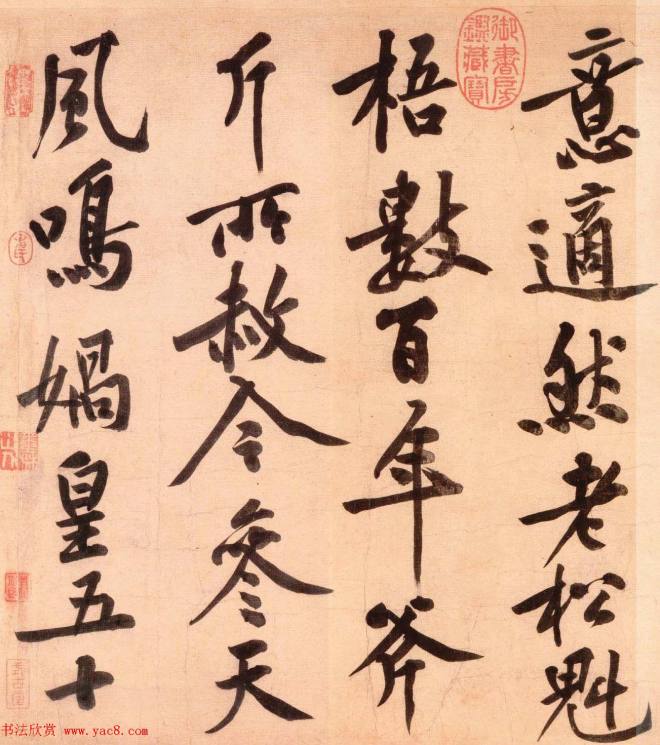 意適然老松魁
梧數百年斧
斤所赦今參天
風鳴媧皇五十
御書房
鑑藏寶
书法欣赏 www.yac8.com